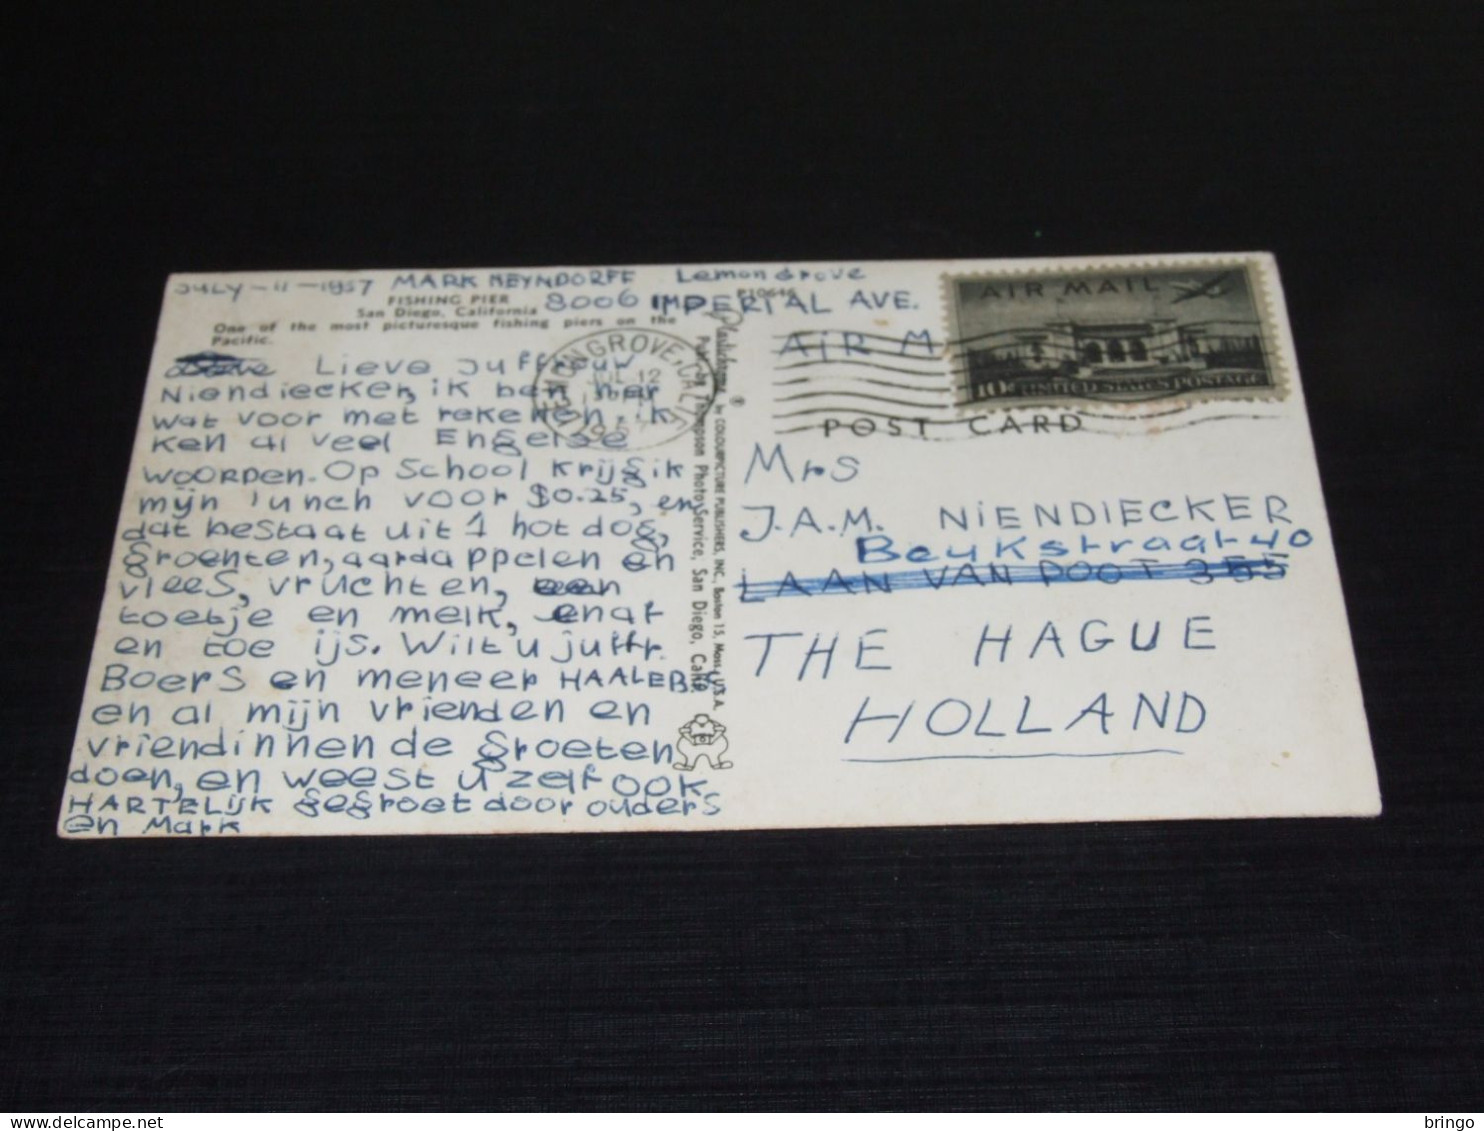 JULY-11-1957 MARK MEYNDORFF Lemon Grove
8006 IMPERIAL AVE.
P10646
FISHING PIER
San Diego, California
One of the most picturesque fishing piers on the
Pacific.
Lieve Juffrouw
Niendiecker, ik ben hier
wat voor met rekenen ik
ken al veel Engelse
woorden. Op School krijg ik
mijn lunch voor $0.25, en
dat bestaat uit 1 hotdog,
groenten, aardappelen en
vlees, vruchten,
toetje en melk,
en toe ijs. Wilt u juffr.
Boers en meneer HAALEB.
en al mijn vrienden en
vriendinnen de groeten
doen, en weest u zelf ook
HARTELIJK gegroet door ouders
en Mark
Plastichrome ® by COLOURPICTURE PUBLISHERS, INC., Boston 15, Mass., U.S.A.
Pub. by Thompson Photo Service, San Diego, Calif.
LEMON GROVE, CALIF.
JUL 12
1957
AIR MAIL
10¢ UNITED STATES POSTAGE
AIR M
POST CARD
Mrs
J.A.M. NIENDIECKER
Beukstraat 40
LAAN VAN POOT 355
THE HAGUE
HOLLAND
bringo